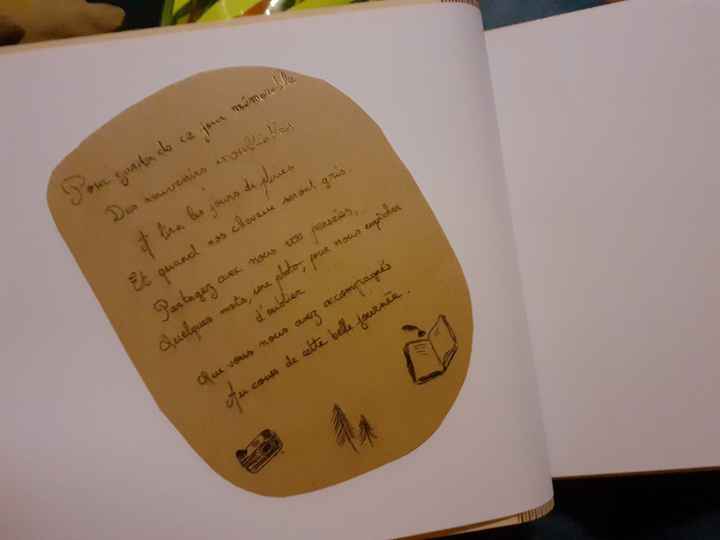 Pour garder de ce jour mémorable
Des souvenirs inoubliables
À lire les jours de pluies
Et quand nos cheveux seront gris.
Partagez avec nous vos pensées,
Quelques mots, une photo, pour nous empêcher
d'oublier
Que vous nous avez accompagnés
Au cours de cette belle journée.